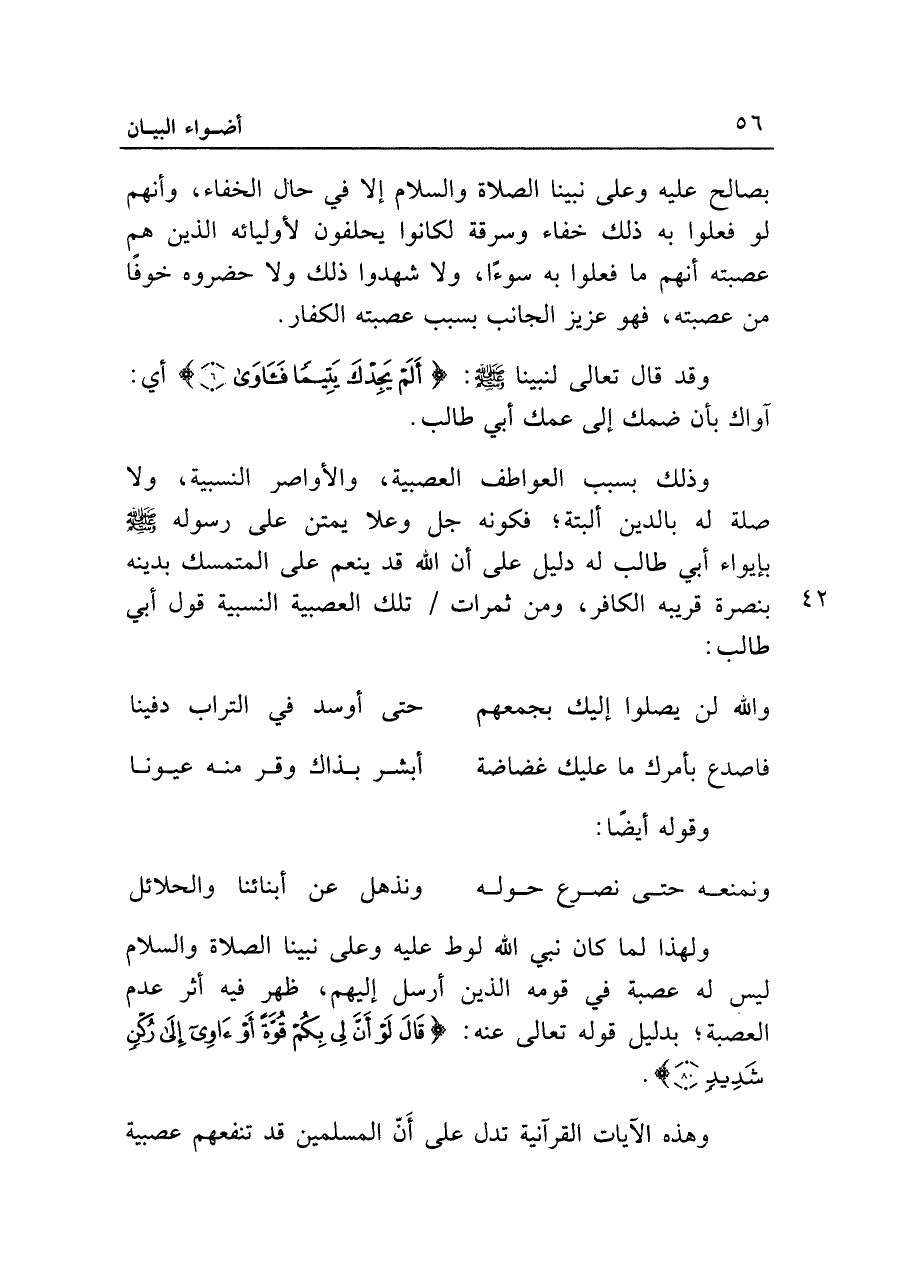 ٥٦ أضواء البيان
بصالح عليه وعلى نبينا الصلاة والسلام إلا في حال الخفاء، وأنهم
لو فعلوا به ذلك خفاء وسرقة لكانوا يحلفون لأوليائه الذين هم
عصبته أنهم ما فعلوا به سوءًا، ولا شهدوا ذلك ولا حضروه خوفًا
من عصبته، فهو عزيز الجانب بسبب عصبته الكفار.
وقد قال تعالى لنبينا ﷺ: ﴿أَلَمْ يَجِدْكَ يَتِيمًا فَـَٔاوَىٰ ٦﴾ أي:
آواك بأن ضمك إلى عمك أبي طالب.
وذلك بسبب العواطف العصبية، والأواصر النسبية، ولا
صلة له بالدين ألبتة؛ فكونه جل وعلا يمتن على رسوله ﷺ
بإيواء أبي طالب له دليل على أن الله قد ينعم على المتمسك بدينه
٤٢ بنصرة قريبه الكافر، ومن ثمرات / تلك العصبية النسبية قول أبي
طالب:
والله لن يصلوا إليك بجمعهم حتى أوسد في التراب دفينا
فاصدع بأمرك ما عليك غضاضة أبشـر بـذاك وقـر منـه عيـونـا
وقوله أيضًا:
ونمنعـه حتـى نصـرع حـولـه ونذهل عن أبنائنا والحلائل
ولهذا لما كان نبي الله لوط عليه وعلى نبينا الصلاة والسلام
ليس له عصبة في قومه الذين أرسل إليهم، ظهر فيه أثر عدم
العصبة؛ بدليل قوله تعالى عنه: ﴿قَالَ لَوْ أَنَّ لِي بِكُمْ قُوَّةً أَوْ ءَاوِىٓ إِلَىٰ رُكْنٍ
شَدِيدٍ ٨٠﴾.
وهذه الآيات القرآنية تدل على أَنّ المسلمين قد تنفعهم عصبية